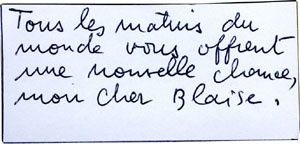 Tous les matins du
monde vous offrent
une nouvelle chance,
mon cher Blaise.